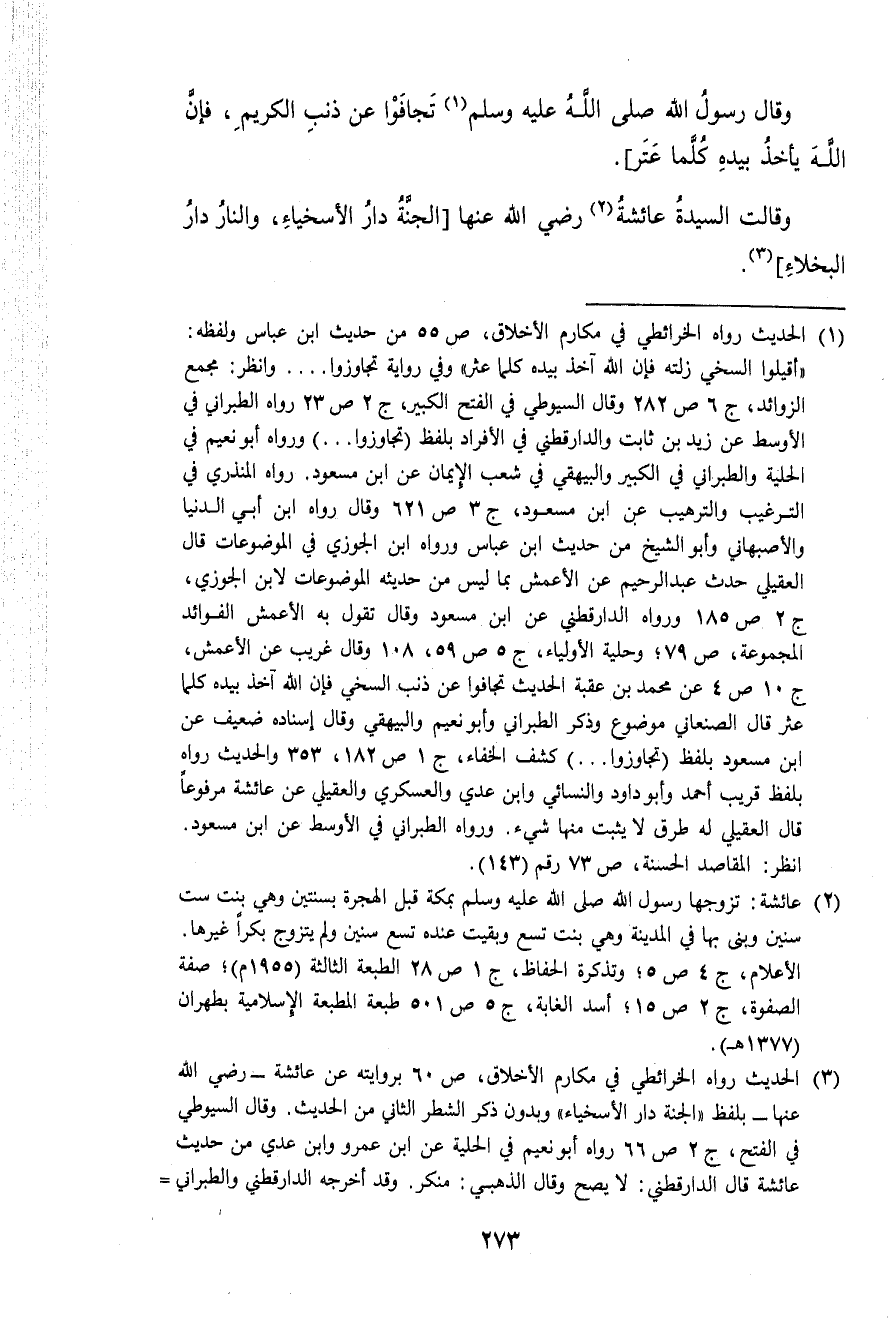 وقال رسولُ الله صلى اللَّـهُ عليه وسلم(١) تَجافَوْا عن ذنبِ الكريمِ ، فإنَّ
اللَّـهَ يأخذُ بيدهِ كُلَّما عَتَر].
وقالت السيدةُ عائشةُ(٢) رضي الله عنها [الجنَّةُ دارُ الأسخياءِ، والنارُ دارُ
البخلاءِ](٣).
(١) الحديث رواه الخرائطي في مكارم الأخلاق، ص ٥٥ من حديث ابن عباس ولفظه:
«أقيلوا السخي زلته فإن الله آخذ بيده كلما عثر» وفي رواية تجاوزوا.... وانظر: مجمع
الزوائد، ج ٦ ص ٢٨٢ وقال السيوطي في الفتح الكبير، ج ٢ ص ٢٣ رواه الطبراني في
الأوسط عن زيد بن ثابت والدارقطني في الأفراد بلفظ (تجاوزوا...) ورواه أبو نعيم في
الحلية والطبراني في الكبير والبيهقي في شعب الإيمان عن ابن مسعود. رواه المنذري في
الترغيب والترهيب عن ابن مسعود، ج ٣ ص ٦٢١ وقال رواه ابن أبي الدنيا
والأصبهاني وأبو الشيخ من حديث ابن عباس ورواه ابن الجوزي في الموضوعات قال
العقيلي حدث عبدالرحيم عن الأعمش بما ليس من حديثه الموضوعات لابن الجوزي،
ج ٢ ص ١٨٥ ورواه الدارقطني عن ابن مسعود وقال تقول به الأعمش الفوائد
المجموعة، ص ٧٩؛ وحلية الأولياء، ج ٥ ص ٥٩، ١٠٨ وقال غريب عن الأعمش،
ج ١٠ ص ٤ عن محمد بن عقبة الحديث تجافوا عن ذنب السخي فإن الله آخذ بيده كلما
عثر قال الصنعاني موضوع وذكر الطبراني وأبو نعيم والبيهقي وقال إسناده ضعيف عن
ابن مسعود بلفظ (تجاوزوا...) كشف الخفاء، ج ١ ص ١٨٢، ٣٥٣ والحديث رواه
بلفظ قريب أحمد وأبو داود والنسائي وابن عدي والعسكري والعقيلي عن عائشة مرفوعاً
قال العقيلي له طرق لا يثبت منها شيء. ورواه الطبراني في الأوسط عن ابن مسعود.
انظر: المقاصد الحسنة، ص ٧٣ رقم (١٤٣).
(٢) عائشة: تزوجها رسول الله صلى الله عليه وسلم بمكة قبل الهجرة بسنتين وهي بنت ست
سنين وبنى بها في المدينة وهي بنت تسع وبقيت عنده تسع سنين ولم يتزوج بكراً غيرها.
الأعلام، ج ٤ ص ٥؛ وتذكرة الحفاظ، ج ١ ص ٢٨ الطبعة الثالثة (١٩٥٥م)؛ صفة
الصفوة، ج ٢ ص ١٥؛ أسد الغابة، ج ٥ ص ٥٠١ طبعة المطبعة الإسلامية بطهران
(١٣٧٧هـ).
(٣) الحديث رواه الخرائطي في مكارم الأخلاق، ص ٦٠ بروايته عن عائشة ـ رضي الله
عنها ـ بلفظ «الجنة دار الأسخياء» وبدون ذكر الشطر الثاني من الحديث. وقال السيوطي
في الفتح، ج ٢ ص ٦٦ رواه أبو نعيم في الحلية عن ابن عمرو وابن عدي من حديث
عائشة قال الدارقطني: لا يصح وقال الذهبي: منكر. وقد أخرجه الدارقطني والطبراني =
٢٧٣